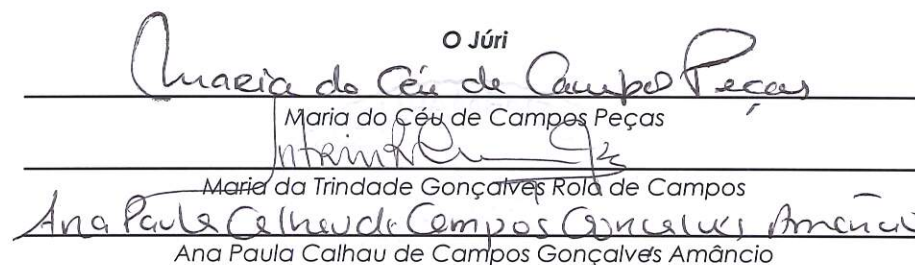 O Júri
Maria do Céu de Campos Peças
Maria do Céu de Campos Peças
Maria da Trindade Gonçalves Rola de Campos
Ana Paula Calhau de Campos Gonçalves Amâncio
Ana Paula Calhau de Campos Gonçalves Amâncio